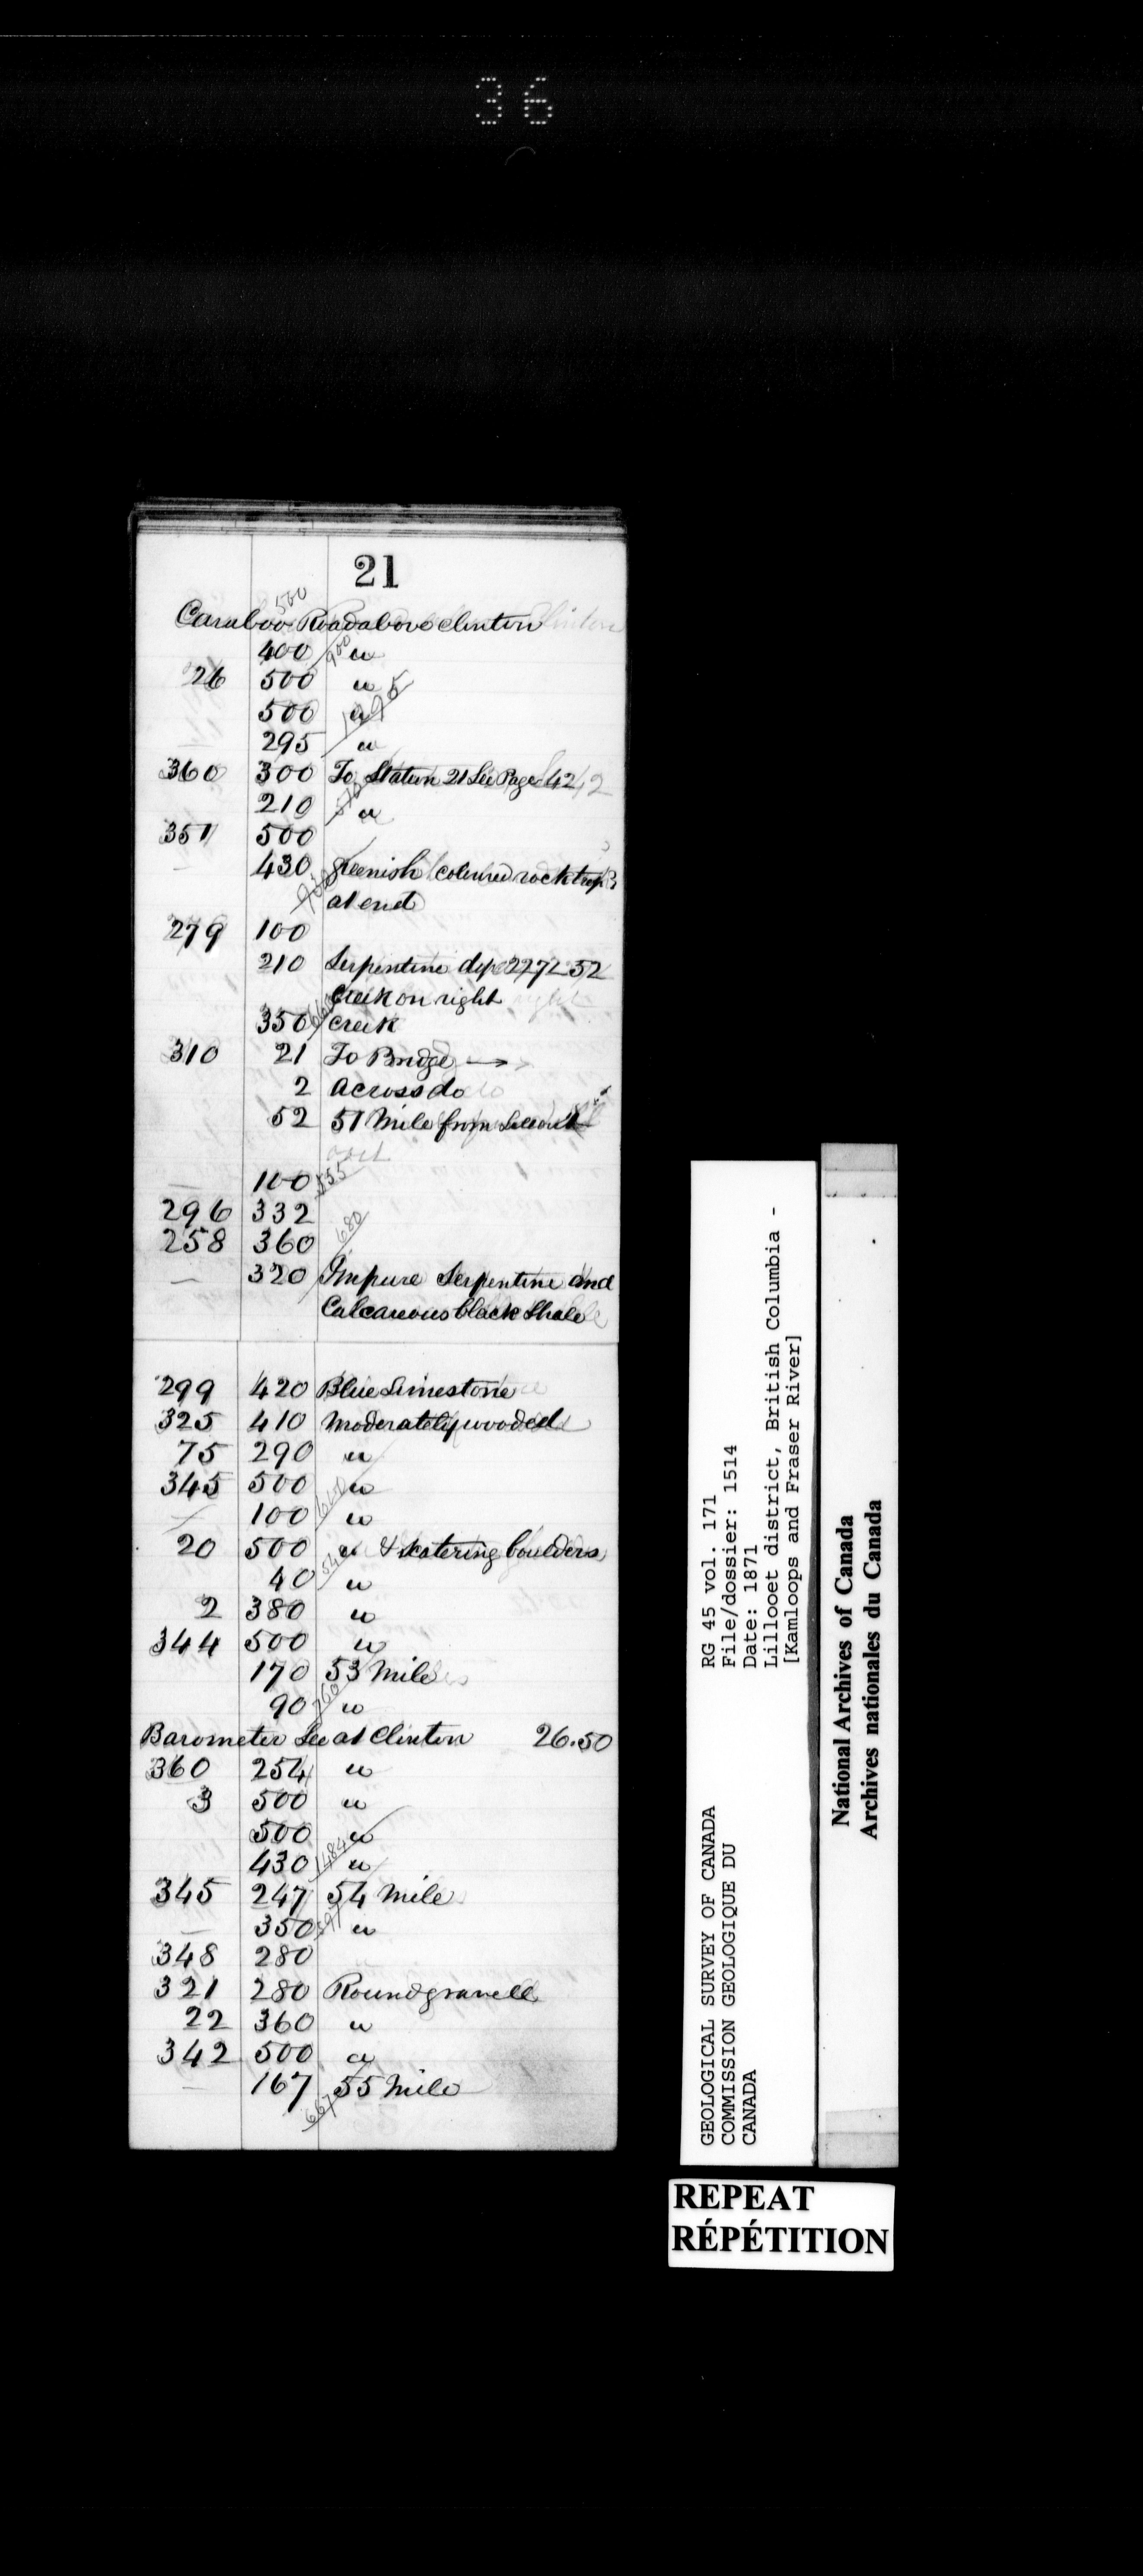 36
21
500
Caraboo Road above Clinton
400 900 "
26 500 "
500 " 1295
295 "
360 300 To Station 21 See Page 42
210 510 "
351 500
— 430 greenish coloured rock trap
930 at end
279 100
210 Serpentine dip 227 L 52
Creek on right
350 660 creek
310 21 To Bridge →
2 across do
52 51 Mile from Lillooet
— 100 555
296 332
258 360 680
— 320 Impure Serpentine and
Calcareous black Shale
299 420 Blue Limestone
325 410 moderately wooded
75 290 "
345 500 "
— 100 600 "
20 500 " & skatering boulders
40 540 "
2 380 "
344 500 "
170 53 Mile
90 760 "
Barometer See at Clinton 26.50
360 254 "
3 500 "
500 "
430 "
345 247 54 Mile
— 350 597 "
348 280
321 280 Round gravell
22 360 "
342 500 "
— 167 55 Mile
667
GEOLOGICAL SURVEY OF CANADA RG 45 vol. 171
COMMISSION GEOLOGIQUE DU File/dossier: 1514
CANADA Date: 1871
Lillooet district, British Columbia -
[Kamloops and Fraser River]
National Archives of Canada
Archives nationales du Canada
REPEAT
RÉPÉTITION